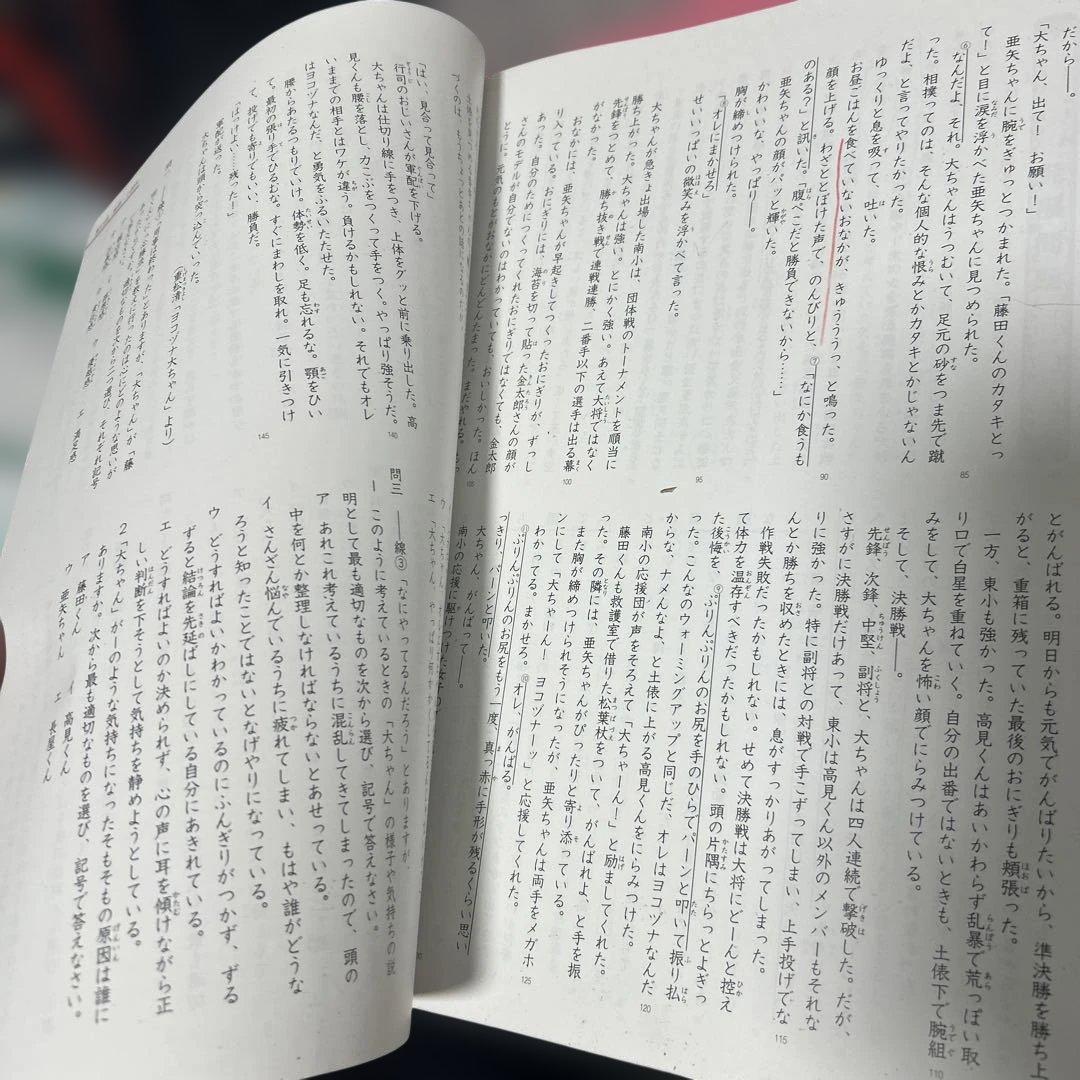 だから――。
「大ちゃん、出て！　お願い！」
亜矢ちゃんに腕をぎゅっとつかまれた。「藤田くんのカタキとっ
て！」と目に涙を浮かべた亜矢ちゃんに見つめられた。
⑥なんだよ、それ。大ちゃんはうつむいて、足元の砂をつま先で蹴
った。相撲ってのは、そんな個人的な恨みとかカタキとかじゃないん
だよ、と言ってやりたかった。
ゆっくりと息を吸って、吐いた。
お昼ごはんを食べていないおなかが、きゅうううっ、と鳴った。
顔を上げる。わざととぼけた声で、のんびりと、⑦「なにか食うも
のある？」と訊いた。「腹ぺこだと勝負できないから……」
亜矢ちゃんの顔がパッと輝いた。
かわいいな、やっぱり――。
胸が締めつけられた。
⑧「オレにまかせろ」
せいいっぱいの微笑みを浮かべて言った。
大ちゃんが急きょ出場した南小は、団体戦のトーナメントを順当に
勝ち上がった。大ちゃんは強い。とにかく強い。あえて大将ではなく
先鋒をつとめて、勝ち抜き戦で連戦連勝、二番手以下の選手は出る幕
がなかった。
おなかには、亜矢ちゃんが早起きしてつくったおにぎりが、ずっし
り入っている。おにぎりには、海苔を切って貼った金太郎さんの顔が
あった。自分のためにつくってくれたおにぎりではなくても、金太郎
さんのモデルが自分でないのはわかっていても、おいしかった。ほん
とうに、元気のもとがおなかにどんどんたまった。まだやれる。もっ
とがんばれる。明日からも元気でがんばりたいから、準決勝を勝ち上
がると、重箱に残っていた最後のおにぎりも頬張った。
一方、東小も強かった。高見くんはあいかわらず乱暴で荒っぽい取
り口で白星を重ねていく。自分の出番ではないときも、土俵下で腕組
みをして、大ちゃんを怖い顔でにらみつけている。
そして、決勝戦――。
先鋒、次鋒、中堅、副将と、大ちゃんは四人連続で撃破した。だが、
さすがに決勝戦だけあって、東小は高見くん以外のメンバーもそれな
りに強かった。特に副将との対戦で手こずってしまい、上手投げでな
んとか勝ちを収めたときには、息がすっかりあがってしまった。
作戦失敗だったかもしれない。せめて決勝戦は大将にどーんと控え
て体力を温存すべきだったかもしれない。頭の片隅にちらっとよぎっ
た後悔を、⑨ぷりんぷりんのお尻を手のひらでパーンと叩いて振り払
った。こんなのウォーミングアップと同じだ、オレはヨコヅナなんだ
からな、ナメんなよ、と土俵に上がる高見くんをにらみつけた。
南小の応援団が声をそろえて「大ちゃーん！」と励ましてくれた。
藤田くんも救護室で借りた松葉杖をついて、がんばれよ、と手を振
った。その隣には、亜矢ちゃんがぴったりと寄り添っている。
また胸が締めつけられそうになったが、亜矢ちゃんは両手をメガホ
ンにして「大ちゃーん！　ヨコヅナーッ」と応援してくれた。
わかってる。まかせろ。⑩オレ、がんばる。
⑪ぷりんぷりんのお尻をもう一度、真っ赤に手形が残るくらい思い
っきり、パーンと叩いた。
大ちゃん、がんばって――。
南小の応援に駆けつけた女子の
「はい、見合って見合って」
行司のおじいさんが軍配を下げる。
大ちゃんは仕切り線に手をつき、上体をグッと前に乗り出した。高
見くんも腰を落とし、力こぶをつくって手をつく。やっぱり強そうだ。
いままでの相手とはワケが違う。負けるかもしれない。それでもオレ
はヨコヅナなんだ、と勇気をふるいたたせた。
腰からあたるつもりでいけ。体勢を低く。足も忘れるな。顎をひい
て。最初の張り手でひるむな。すぐにまわしを取れ。一気に引きつけ
て、投げても寄りてもいい、勝負だ。
「はっけよぉ、……残った！」
軍配が返った。
大ちゃんは頭から突っ込んでいった。
（重松清「ヨコヅナ大ちゃん」より）
問三　――線③「なにやってるんだろう」とありますが、
1　このように考えているときの「大ちゃん」の様子や気持ちの説
明として最も適切なものを次から選び、記号で答えなさい。
ア　あれこれ考えているうちに混乱してきてしまったので、頭の
中を何とか整理しなければならないとあせっている。
イ　さんざん悩んでいるうちに疲れてしまい、もはや誰がどうな
ろうと知ったことではないとなげやりになっている。
ウ　どうすればよいかわかっているのにふんぎりがつかず、ずる
ずると結論を先延ばしにしている自分にあきれている。
エ　どうすればよいのか決められず、心の声に耳を傾けながら正
しい判断を下そうとして気持ちを静めようとしている。
2　「大ちゃん」が1のような気持ちになったそもそもの原因は誰に
ありますか。次から最も適切なものを選び、記号で答えなさい。
ア　藤田くん　　イ　高見くん
ウ　亜矢ちゃん　エ　長尾くん
85
90
95
100
105
110
115
120
125
140
145